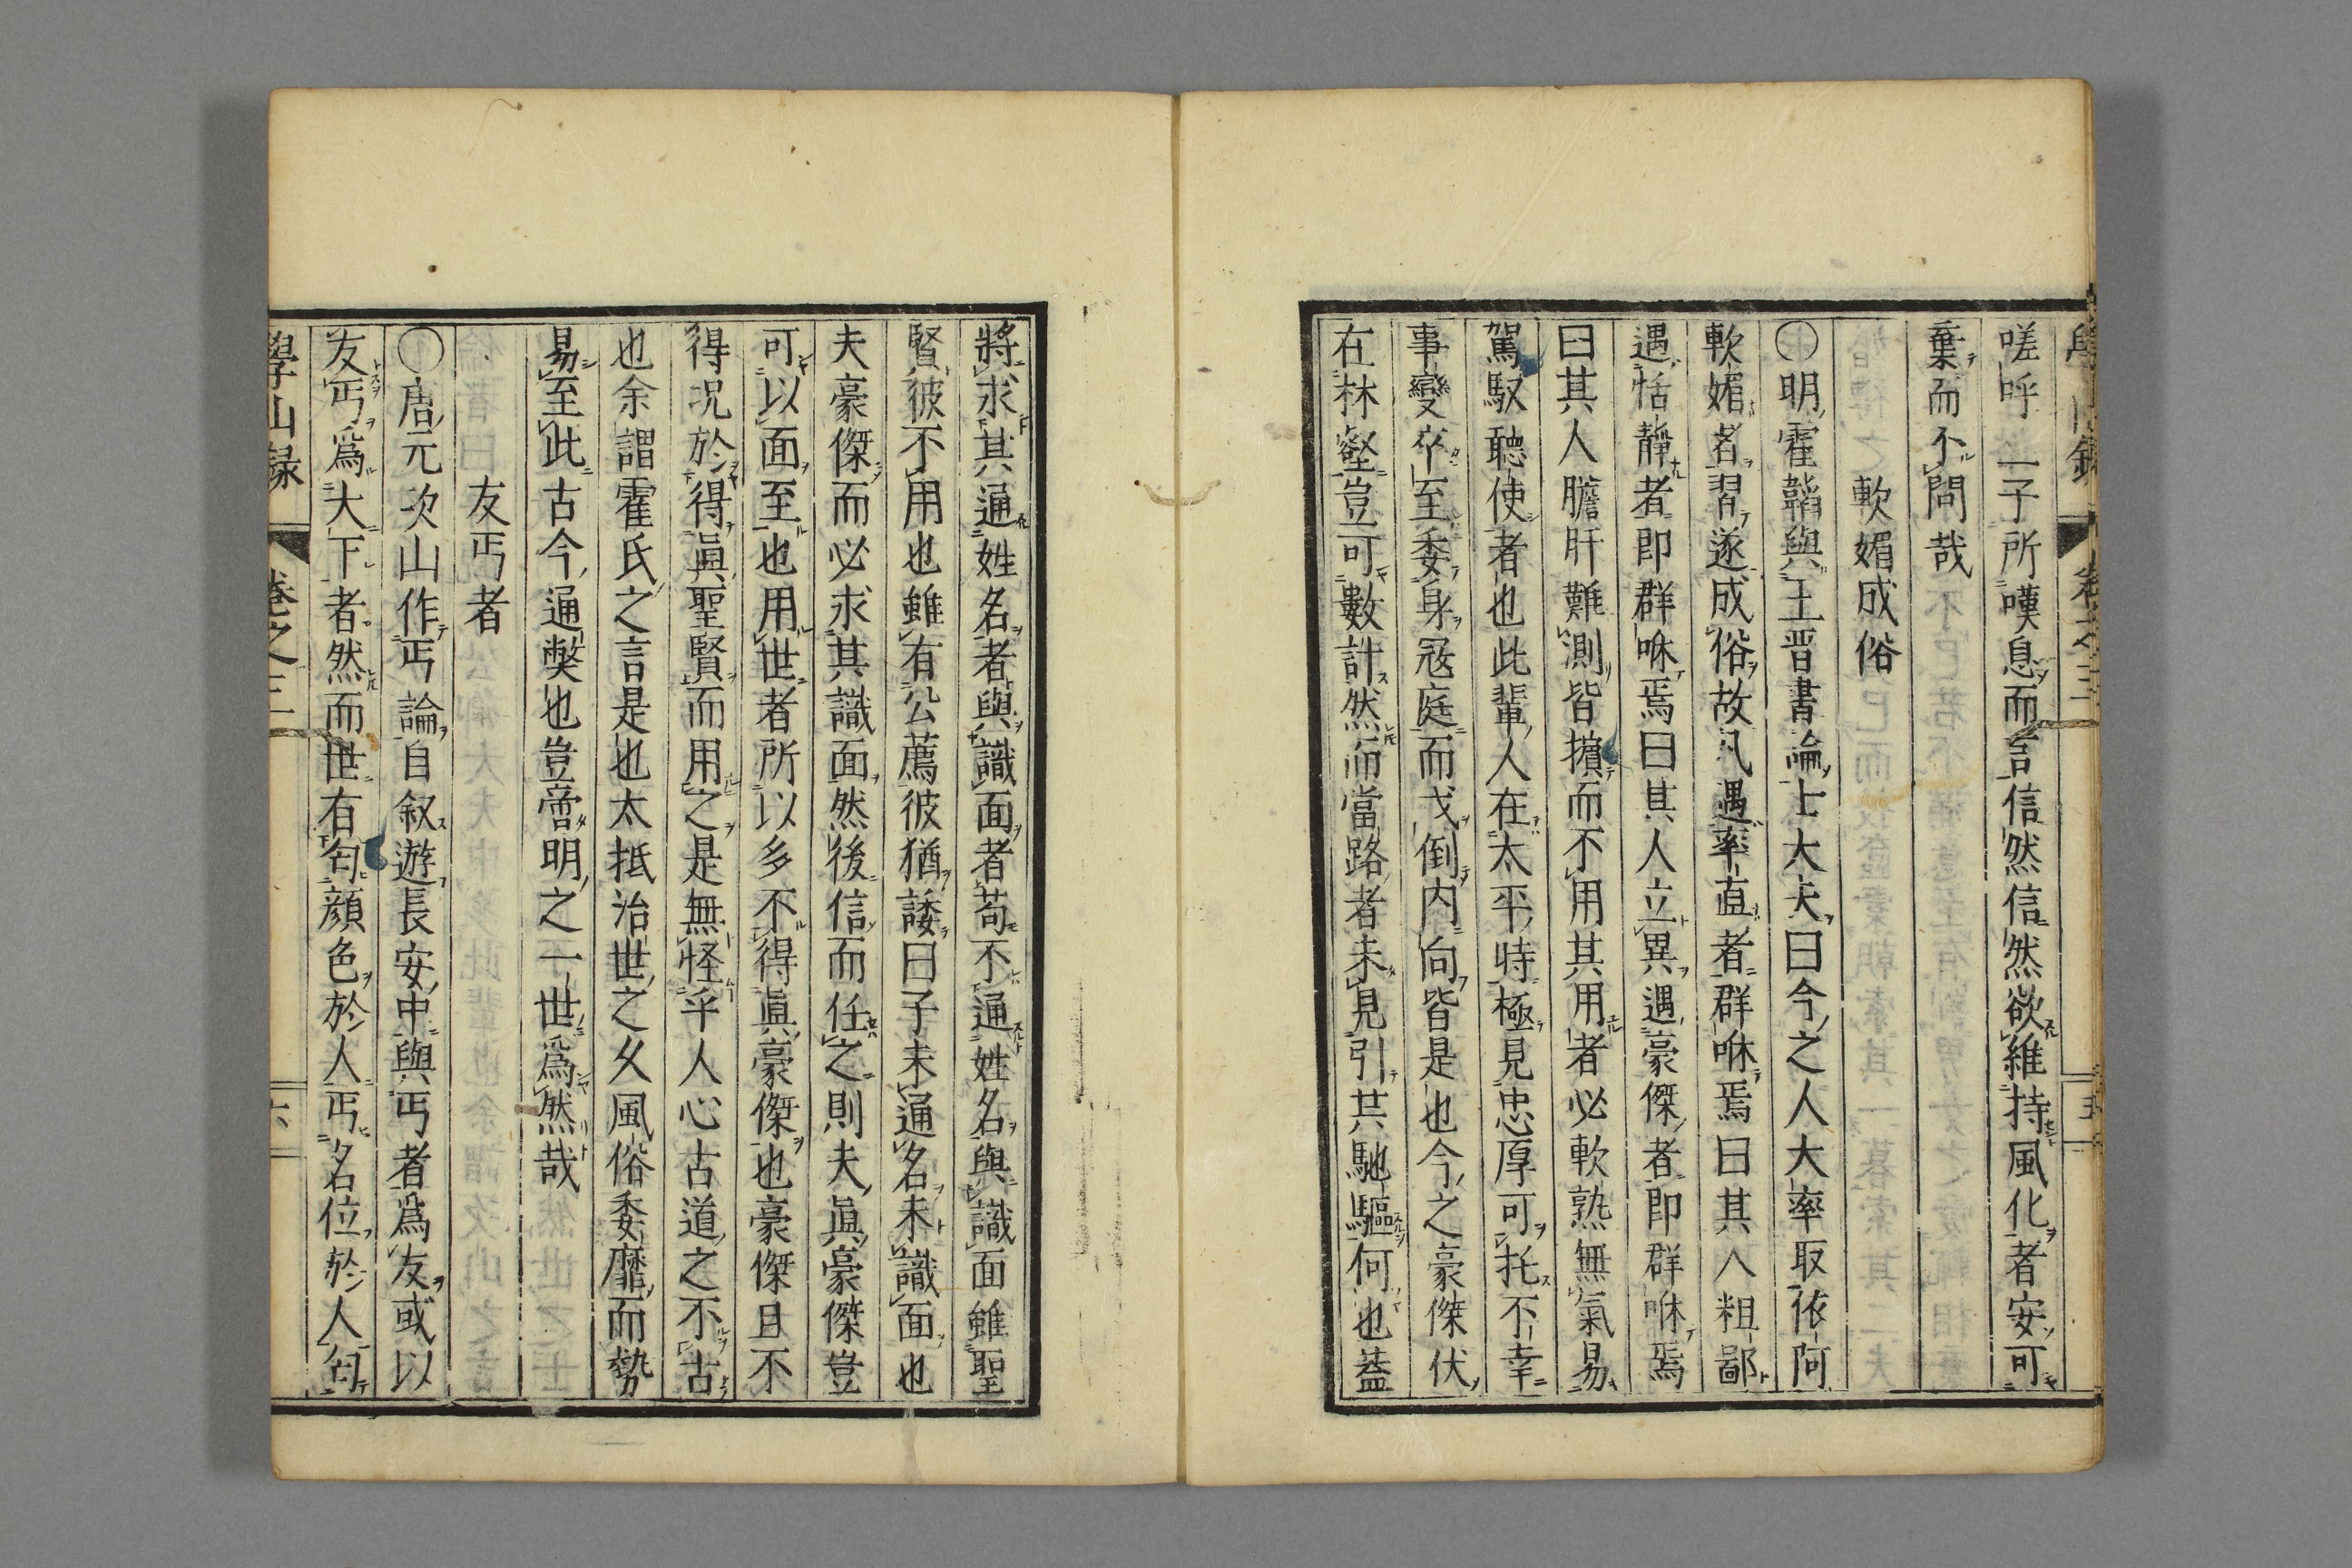 嗟呼一子所嘆息而言信然信然欲維持風化者安可
棄而不問哉
軟媚成俗
〇明霍韜與王晋書論士大夫曰今之人大率取依阿
軟媚者習遂成俗故凡遇率直者群咻焉曰其人粗鄙
遇恬靜者即群咻焉曰其人立異遇豪傑者即群咻焉
曰其人膽肝難測皆擯而不用其用者必軟熟無氣易
駕馭聽使者也此輩人在太平時極見忠厚可托不幸
事變卒至委身冦庭而戈倒内向皆是也今之豪傑伏
在林壑豈可數計然而當路者未見引其馳驅何也葢
將求其通姓名者與識面者苟不通姓名與識面雖聖
賢彼不用也雖有公薦彼猶諉曰子未通名未識面也
夫豪傑而必求其識面然後信而任之則夫眞豪傑豈
可以面至也用世者所以多不得眞豪傑也豪傑且不
得况於得眞聖賢而用之是無怪乎人心古道之不古
也余謂霍氏之言是也太抵治世之久風俗委靡而勢
易至此古今通獘也豈啻明之一世爲然哉
友丐者
〇唐元次山作丐論自叙遊長安中與丐者爲友或以
友丐爲大下者然而世有匃顔色於人丐名位於人匃
學山録 卷之三 六